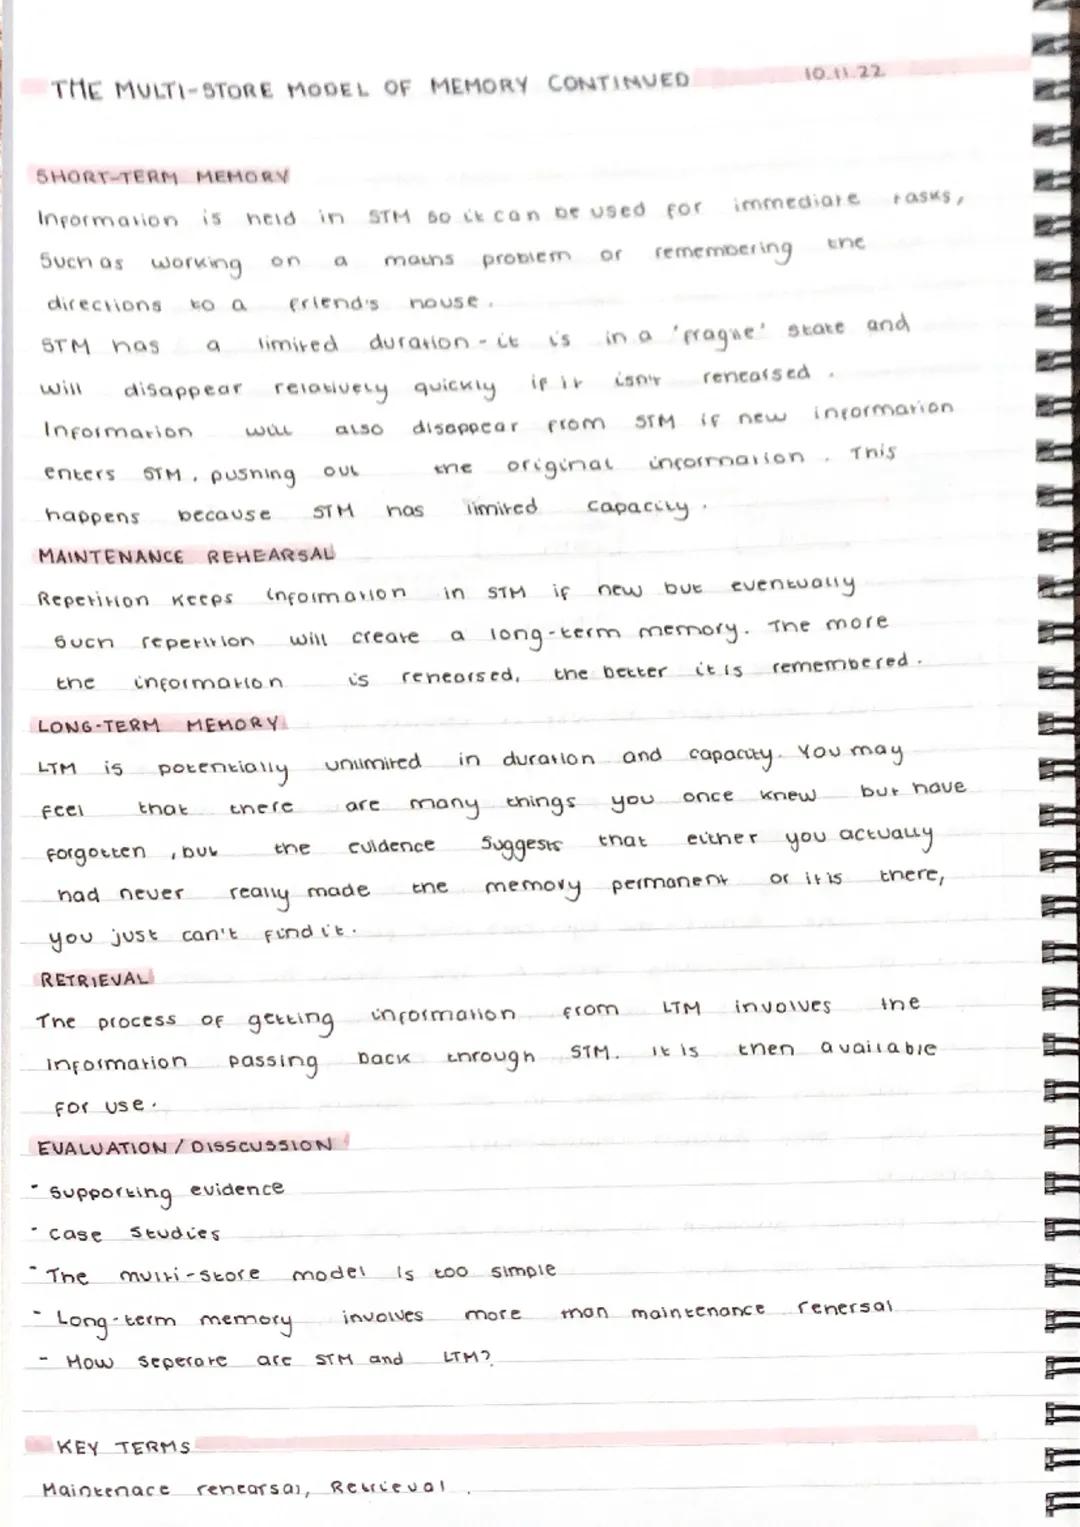 THE MULTI-STORE MODEL OF MEMORY CONTINUED 10.11.22
SHORT-TERM MEMORY
Information is held in STM so it can be used for immediate tasks,
Such as working on a maths problem or remembering the
directions to a friend's house.
STM has a limited duration - it is in a 'fragile' state and
will disappear relatively quickly if it isn't rehearsed.
Information will also disappear from STM if new information
enters STM, pushing out the original information. This
happens because STM has limited capacity.
MAINTENANCE REHEARSAL
Repetition keeps information in STM if new but eventually
such repetition will create a long-term memory. The more
the information is rehearsed, the better it is remembered.
LONG-TERM MEMORY
LTM is potentially unlimited in duration and capacity. You may
feel that there are many things you once knew but have
forgotten, but the evidence suggests that either you actually
had never really made the memory permanent or it is there,
you just can't find it.
RETRIEVAL
The process of getting information from LTM involves the
information passing back through STM. It is then available
for use.
EVALUATION / DISSCUSSION
- Supporting evidence
- Case Studies
- The multi-store model is too simple
- Long-term memory involves more than maintenance rehersal
- How seperate are STM and LTM?
KEY TERMS
Maintenace rehearsal, Retrieval.